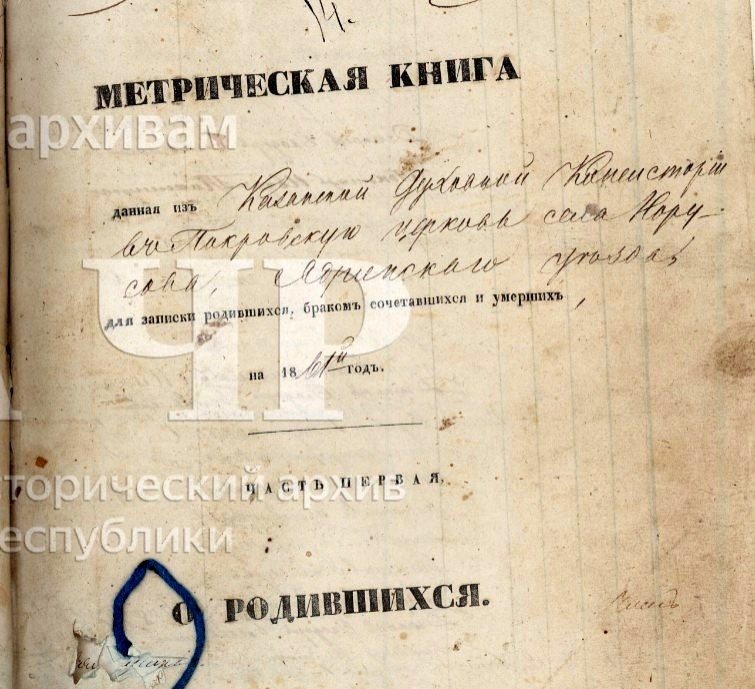 14.
МЕТРИЧЕСКАЯ КНИГА
архивам
данная изъ Казанской Духовной Консисторіи
въ Покровскую церковь села Нору-
сова, Ядринскаго уѣзда,
для записки родившихся, бракомъ сочетавшихся и умершихъ,
ЧР
на 1861й годъ.
ЧАСТЬ ПЕРВАЯ,
торический архив
еспублики
О РОДИВШИХСЯ.